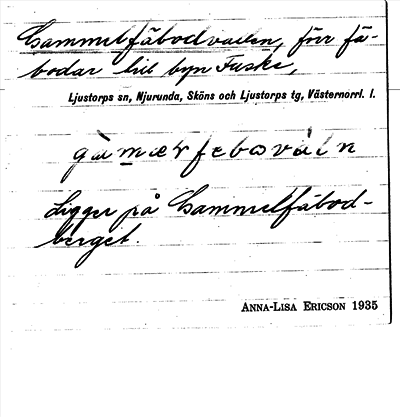 Gammelfäbodvallen, förr fä-
bodar till byn Fuske,
Ljustorps sn, Njurunda, Sköns och Ljustorps tg, Västernorrl. l.
Ligger på Gammelfäbod-
berget.
ANNA-LISA ERICSON 1935